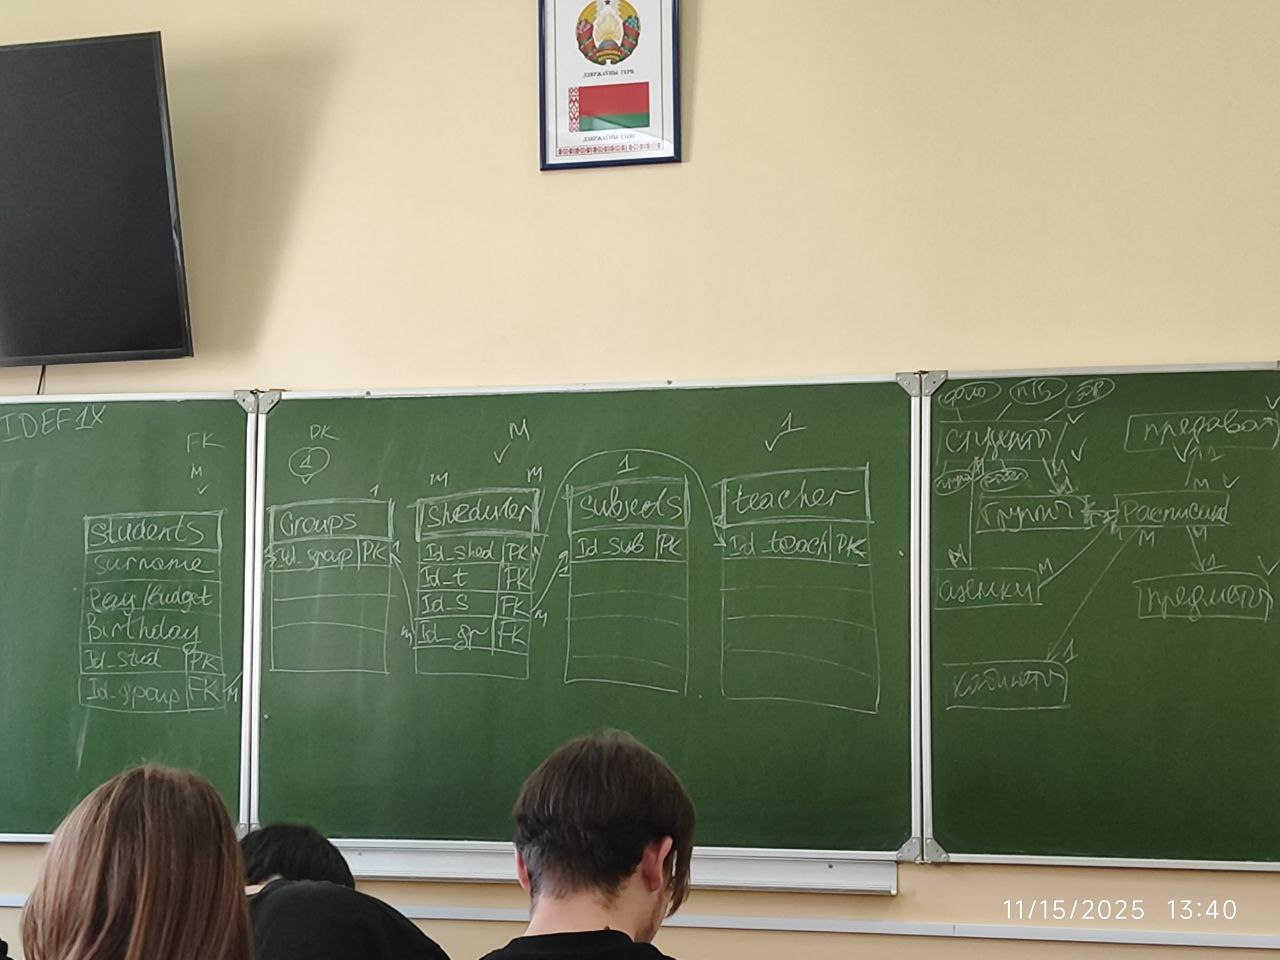 ДЗЯРЖАЎНЫ ГЕРБ
ДЗЯРЖАЎНЫ СЦЯГ
IDEF1X
FK
M
students
surname
Pay/Budget
Birthday
Id_stud PK
Id_group FK
M
PK
1
1
Groups
Id_group PK
M
M
M
Sheduler
Id_shed PK
Id_t FK
Id_s FK
Id_gr FK
M
M
1
subjects
Id_sub PK
1
teacher
Id_teach PK
фио
п/б
студент
M
групп
оценки
M
M
кабинеты
1
преподават
1
M
Расписан
M
M
1
предметы
11/15/2025 13:40